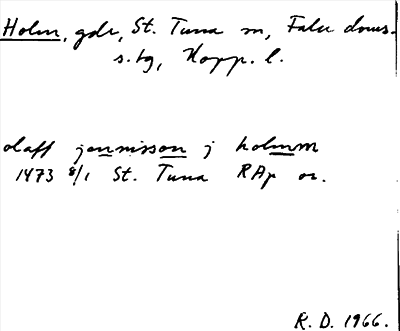 Holm, gdr, St. Tuna sn, Falu doms.
s.tg, Kopp. l.
olaff jennisson j holmm
1473 8/1 St. Tuna RAp or.
R. D. 1966.